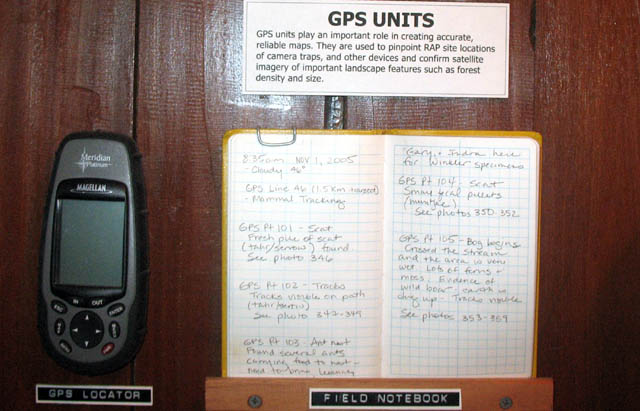 GPS UNITS
GPS units play an important role in creating accurate,
reliable maps. They are used to pinpoint RAP site locations
of camera traps, and other devices and confirm satellite
imagery of important landscape features such as forest
density and size.
Meridian
Platinum
MAGELLAN
IN OUT
ESC
ENTER
NAV
MENU
GPS LOCATOR
8:35am NOV 1, 2005
- Cloudy 46°
GPS Line 46 (1.5 Km transect)
- Mammal Tracking
GPS Pt 101 - Scat
Fresh pile of scat
(tahr/serow) found
See photo 346
GPS Pt 102 - Tracks
Tracks visible on path
(tahr/serow)
See photo 347-349
GPS Pt 103 - Ant nest
Found several ants
carrying food to nest -
need to
"Gary + Indra here
for Winkler specimens
GPS Pt 104 - Scat
Small fecal pellets
(muntjac)
See photos 350-352
GPS Pt 105 - Bog begins
Crossed the stream
and the area is very
wet. Lots of ferns +
moss. Evidence of
wild boar - earth is
dug up - Tracks visible
See photos 353-359
FIELD NOTEBOOK